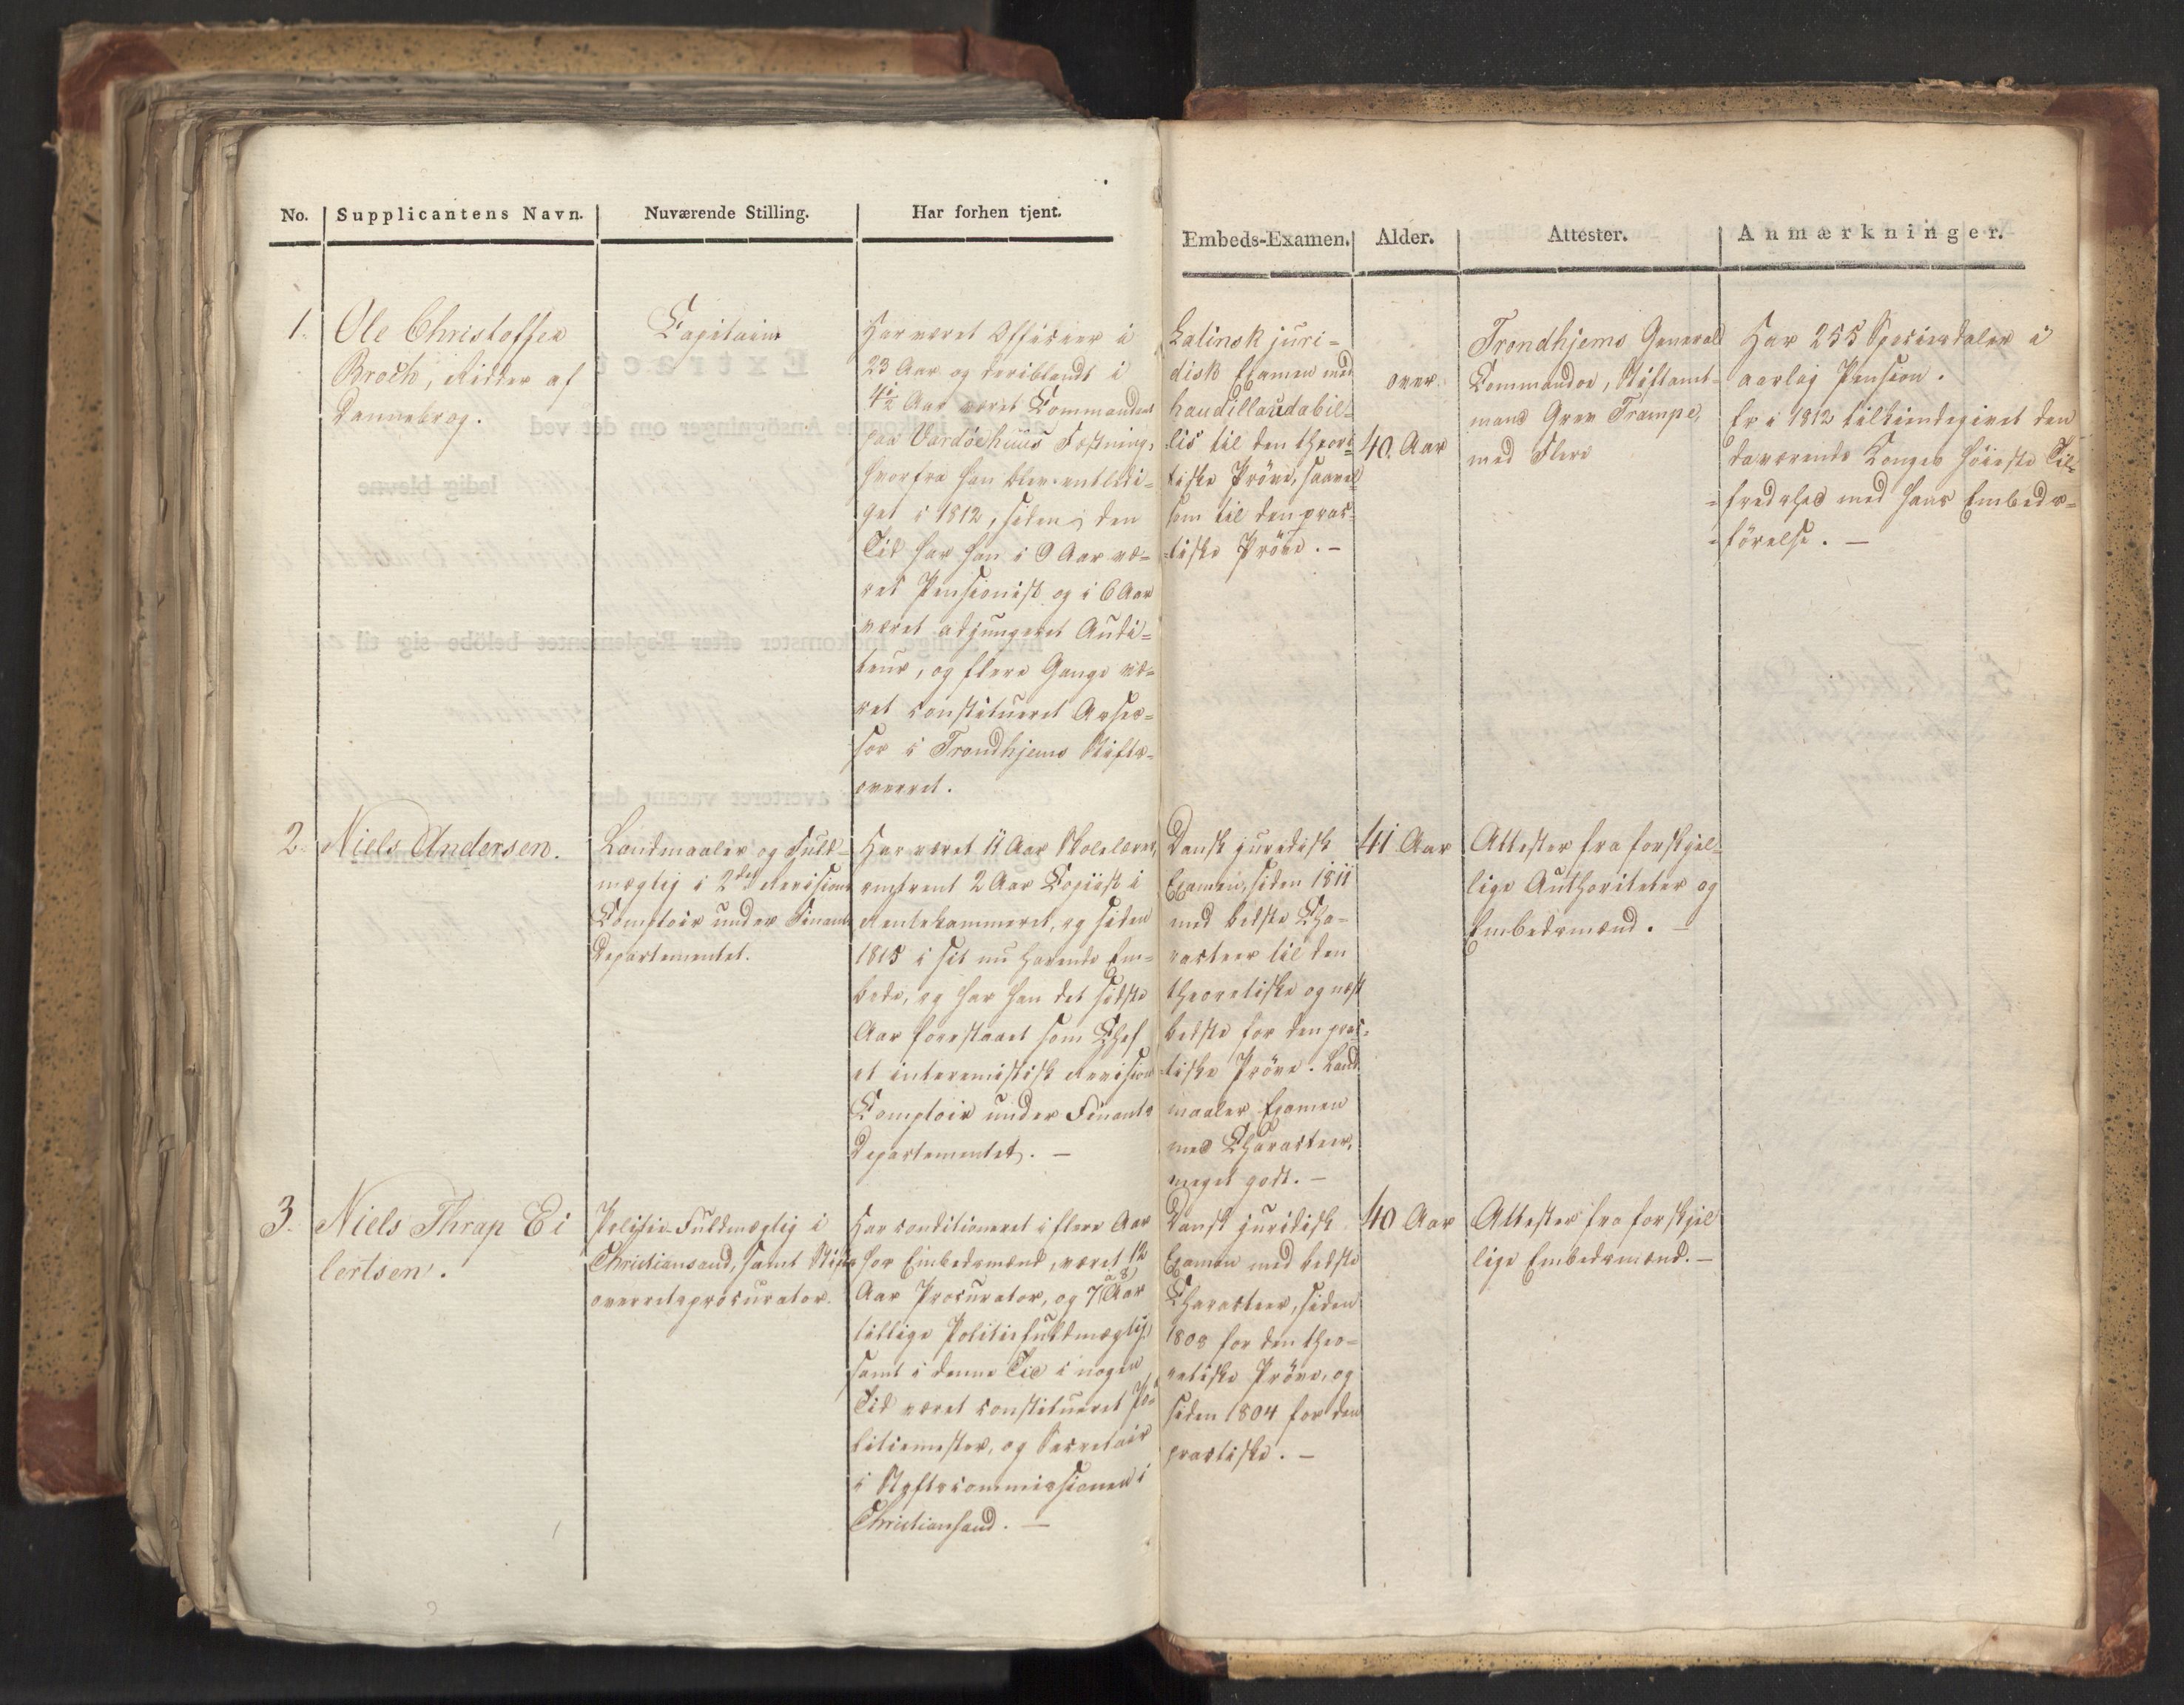 No.
Supplicantens Navn.
Nuværende Stilling.
Har forhen tjent.
Embeds-Examen.
Alder.
Attester.
Anmærkninger.
1.
Ole Christoffer
Broch, Ridder af
Dannebrog.
Capitain
Har været Officeer i
23 Aar og deriblandt i
4½ Aar været Commandant
paa Vardöehuus Fæstning,
hvorfra han blev entledi=
get i 1812, siden den
Tid har han i 9 Aar væ=
ret Pensionist og i 6 Aar
været adjungeret Audi=
teur, og flere Gange væ=
ret constitueret Asses=
sor i Trondhjems Stifts=
overret.
Latinsk juri=
disk Examen med
haud illaudabil=
lis til den theore=
tiske Pröve, saavel
som til den prac=
tiske Pröve. –
over
40. Aar
Trondhjems General
Commando, Stiftamt=
mand Grev Trampe,
med Flere
Har 255 Speciesdaler i
aarlig Pension.
Er i 1812 tilkiendegivet den
daværende Konges höieste Til=
=fredshed med hans Embeds=
=förelse. –
2.
Niels Andersen.
Landmaaler og Fuld=
mægtig i 2det Revisions
Comptoir under Finants
Departementet.
Har været 11 Aar Skolelærer,
omtrent 2 Aar Copiist i
Rentekammeret, og siden
1815 i sit nu havende Em=
bede, og har han det sidste
Aar forestaaet som Chef
et interimistisk Revisions
Comptoir under Finants
Departementet. –
Dansk juridisk
Examen, siden 1811
med bedste Cha=
racteer til den
theoretiske og næst
bedste for den prac=
tiske Pröve. Land
maaler Examen
med Characteer,
meget godt. –
41 Aar
Attester fra forskjel=
lige Authoriteter og
Embedsmænd. –
3.
Niels Thrap Ei
lertsen.
Politie-Fuldmægtig i
Christiansand, samt Stifts
overretsprocurator.
Har conditioneret i flere Aar
hos Embedsmænd, været 12
Aar Procurator, og 7 a 8 Aar
tillige Politiefuldmægtig,
samt i denne Tid i nogen
Tid været constitueret Po
litiemester, og Secretair
i Stiftscommissionen i
Christiansand. –
Dansk juridisk
Examen med bedste
Characteer, siden
1803 for den theo=
retiske Pröve, og
siden 1804 for den
practiske. –
40 Aar
Attester fra forskjel
lige Embedsmænd. –